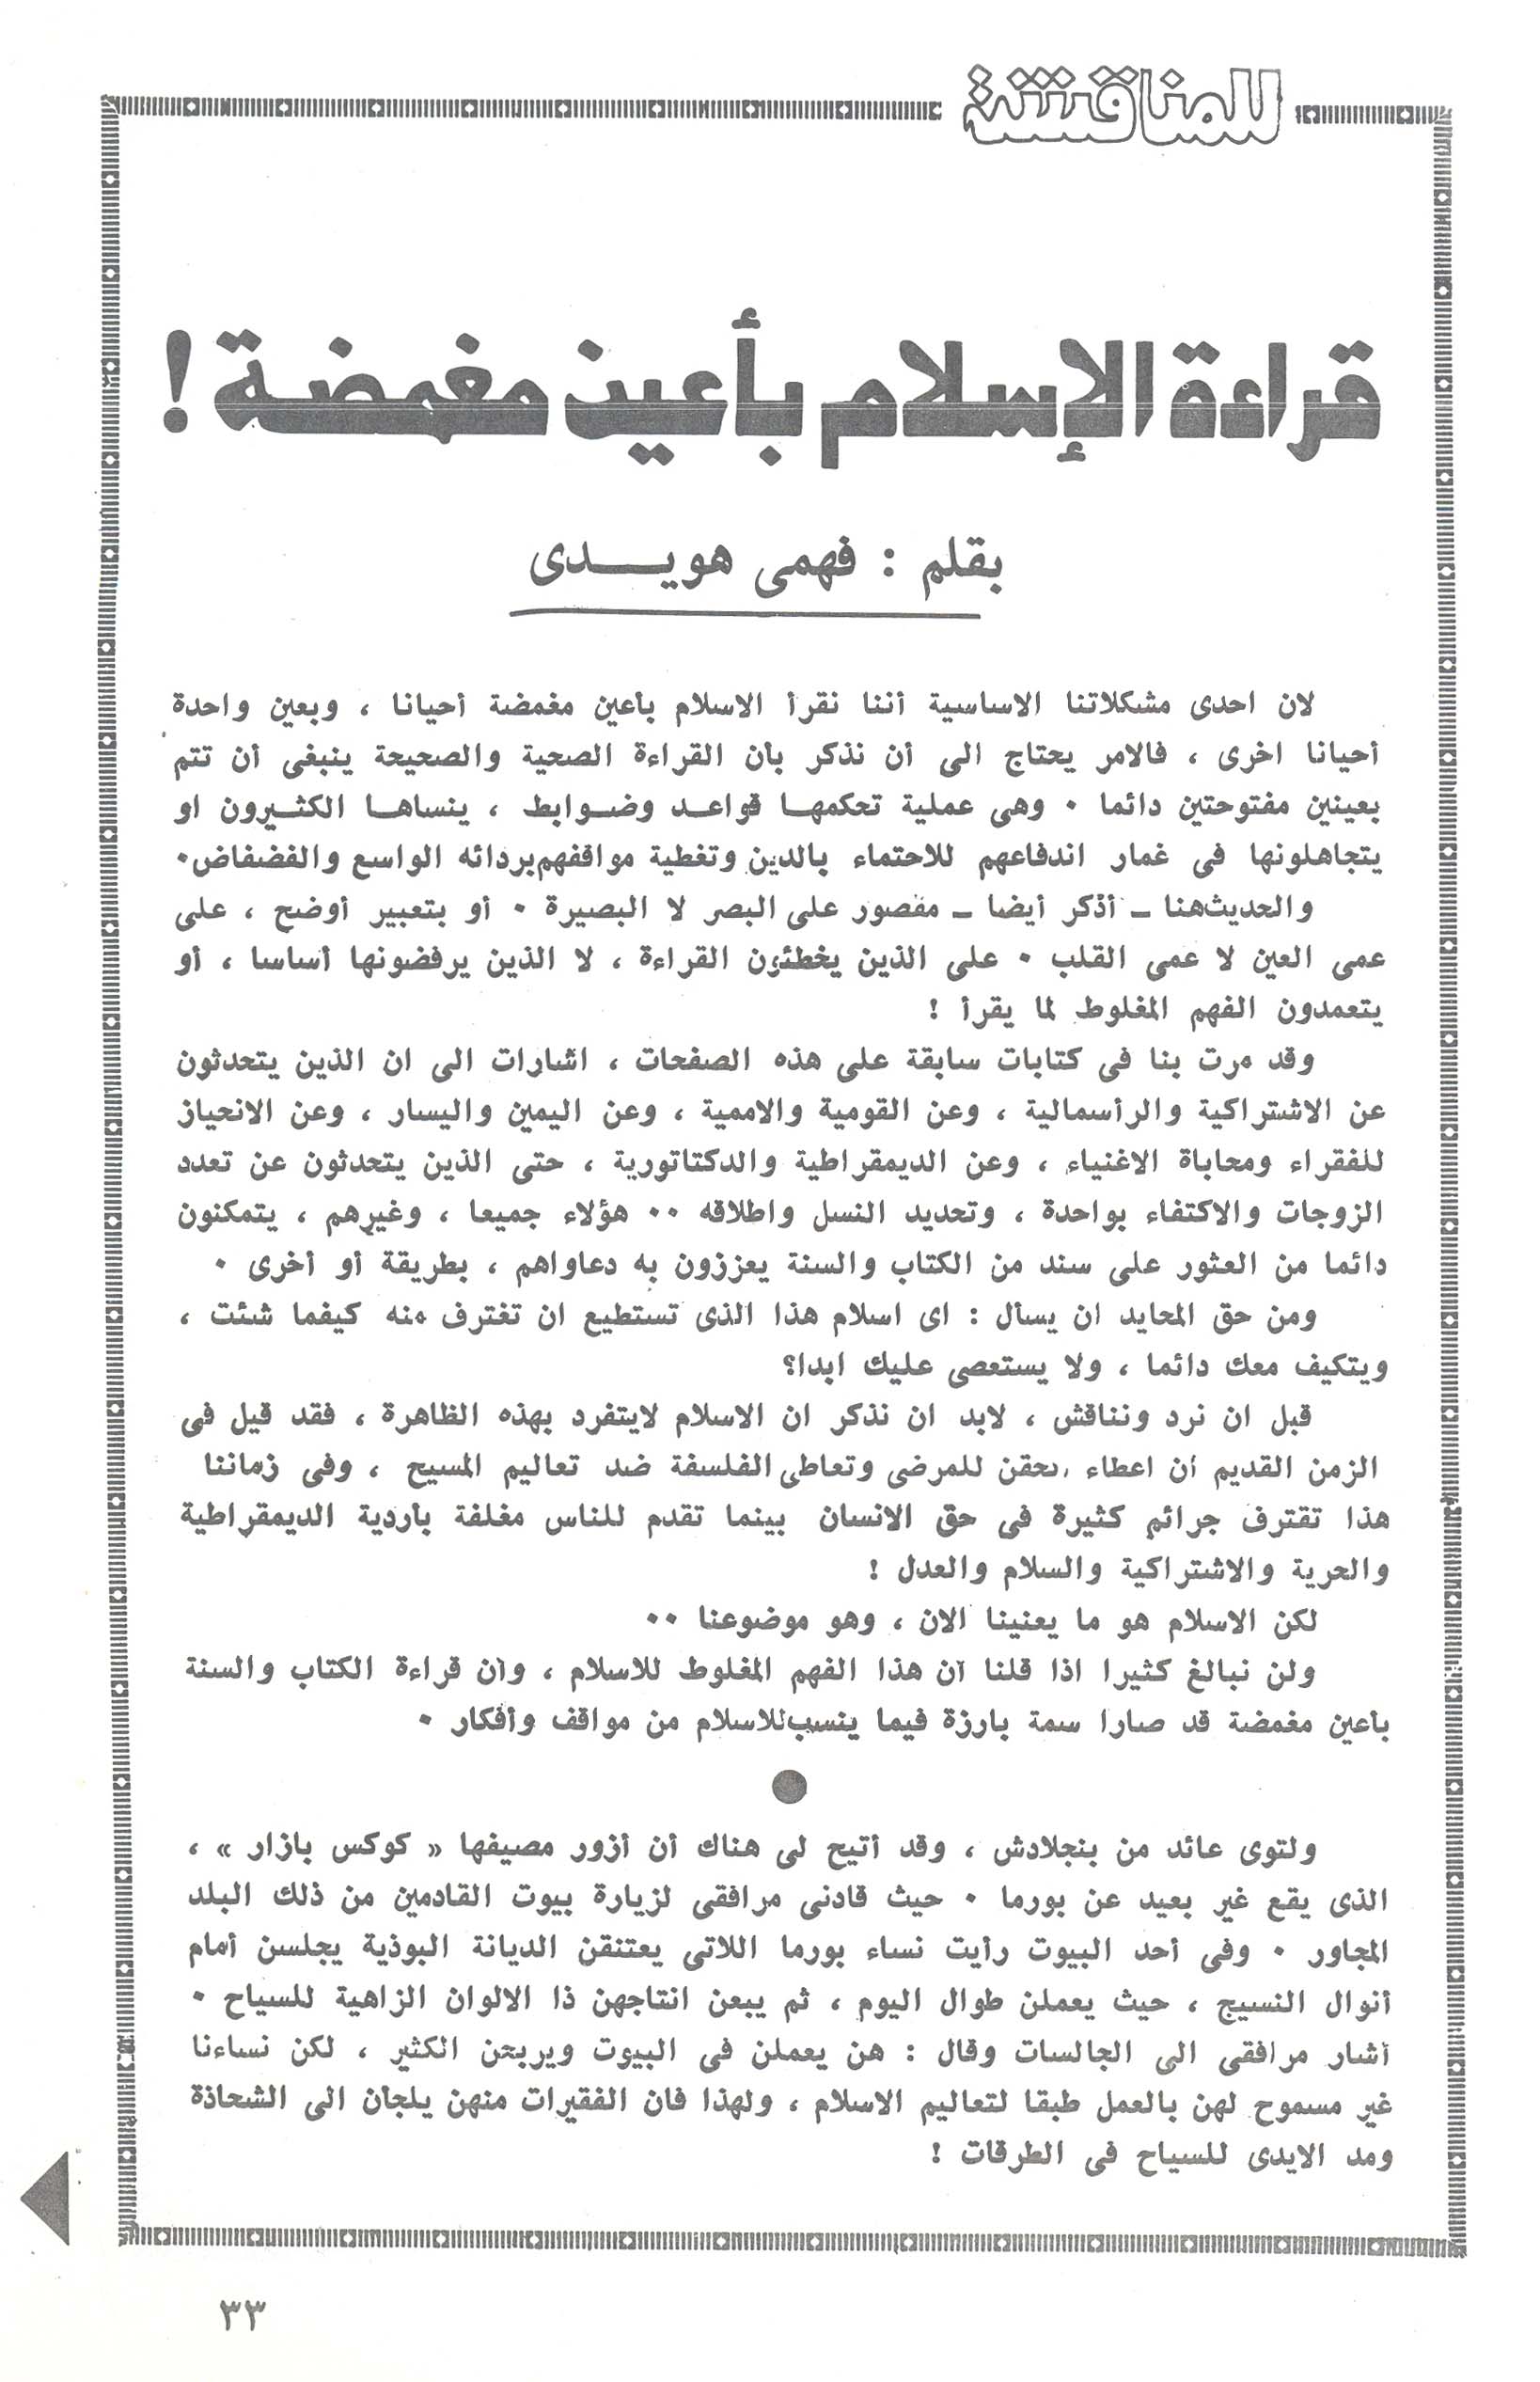 للمناقشة
قراءة الإسلام بأعين مغمضة !
بقلم : فهمى هويدى
لان احدى مشكلاتنا الاساسية أننا نقرأ الاسلام بأعين مغمضة أحيانا ، وبعين واحدة
أحيانا اخرى ، فالامر يحتاج الى أن نذكر بأن القراءة الصحية والصحيحة ينبغى أن تتم
بعينين مفتوحتين دائما ٠ وهى عملية تحكمها قواعد وضوابط ، ينساها الكثيرون او
يتجاهلونها فى غمار اندفاعهم للاحتماء بالدين وتغطية مواقفهم بردائه الواسع والفضفاض٠
والحديث هنا ـ أذكر أيضا ـ مقصور على البصر لا البصيرة ٠ أو بتعبير أوضح ، على
عمى العين لا عمى القلب ٠ على الذين يخطئون القراءة ، لا الذين يرفضونها أساسا ، أو
يتعمدون الفهم المغلوط لما يقرأ !
وقد مرت بنا فى كتابات سابقة على هذه الصفحات ، اشارات الى ان الذين يتحدثون
عن الاشتراكية والرأسمالية ، وعن القومية والاممية ، وعن اليمين واليسار ، وعن الانحياز
للفقراء ومحاباة الاغنياء ، وعن الديمقراطية والدكتاتورية ، حتى الذين يتحدثون عن تعدد
الزوجات والاكتفاء بواحدة ، وتحديد النسل واطلاقه ٠٠ هؤلاء جميعا ، وغيرهم ، يتمكنون
دائما من العثور على سند من الكتاب والسنة يعززون به دعاواهم ، بطريقة أو أخرى ٠
ومن حق المحايد ان يسأل : اى اسلام هذا الذى تستطيع ان تغترف منه كيفما شئت ،
ويتكيف معك دائما ، ولا يستعصى عليك ابدا؟
قبل ان نرد ونناقش ، لابد ان نذكر ان الاسلام لايتفرد بهذه الظاهرة ، فقد قيل فى
الزمن القديم أن اعطاء الحقن للمرضى وتعاطى الفلسفة ضد تعاليم المسيح ، وفى زماننا
هذا تقترف جرائم كثيرة فى حق الانسان بينما تقدم للناس مغلفة بأردية الديمقراطية
والحرية والاشتراكية والسلام والعدل !
لكن الاسلام هو ما يعنينا الان ، وهو موضوعنا ٠٠
ولن نبالغ كثيرا اذا قلنا أن هذا الفهم المغلوط للاسلام ، وأن قراءة الكتاب والسنة
بأعين مغمضة قد صارا سمة بارزة فيما ينسب للاسلام من مواقف وأفكار ٠
ولتوى عائد من بنجلادش ، وقد أتيح لى هناك أن أزور مصيفها « كوكس بازار » ،
الذى يقع غير بعيد عن بورما ٠ حيث قادنى مرافقى لزيارة بيوت القادمين من ذلك البلد
المجاور ٠ وفى أحد البيوت رأيت نساء بورما اللاتى يعتنقن الديانة البوذية يجلسن أمام
أنوال النسيج ، حيث يعملن طوال اليوم ، ثم يبعن انتاجهن ذا الالوان الزاهية للسياح ٠
أشار مرافقى الى الجالسات وقال : هن يعملن فى البيوت ويربحن الكثير ، لكن نساءنا
غير مسموح لهن بالعمل طبقا لتعاليم الاسلام ، ولهذا فان الفقيرات منهن يلجأن الى الشحاذة
ومد الايدى للسياح فى الطرقات !
٣٣